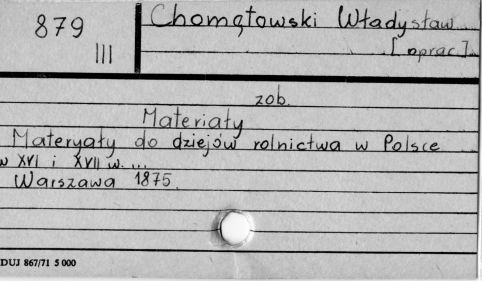 879
III
Chomątowski Władysław
[oprac].
zob.
Materiały
Materyały do dziejów rolnictwa w Polsce
w XVI i XVII w. ...
Warszawa 1875.
DUJ 867/71 5 000